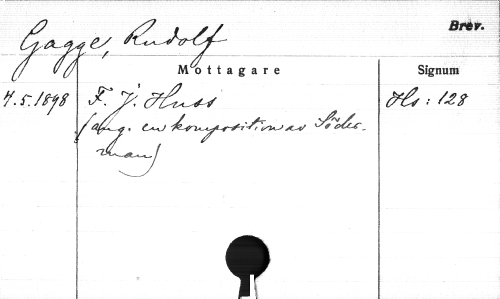 Brev.
Gagge, Rudolf
Mottagare
Signum
7.5.1898 F. J. Huss Hs: 128
(ang. en komposition av Söder-
man)